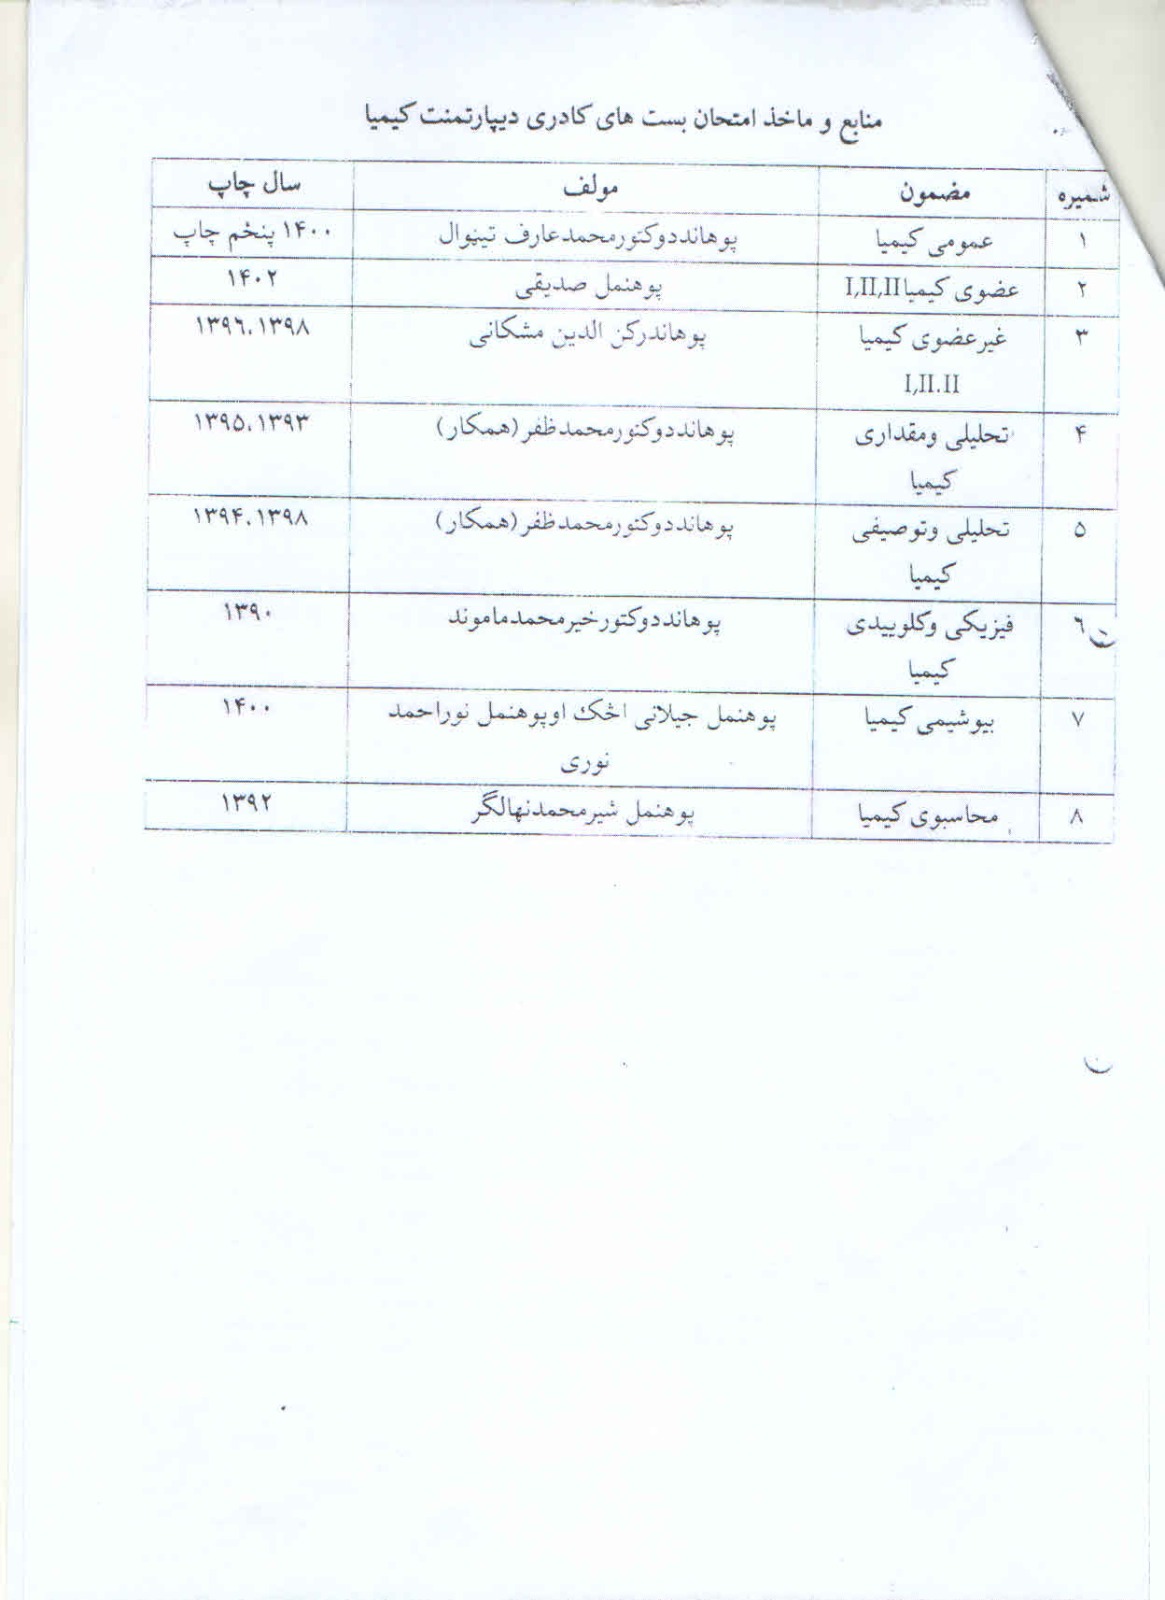 منابع و ماخذ امتحان بست های کادری دیپارتمنت کیمیا
شمیره مضمون مولف سال چاپ
۱ عمومی کیمیا پوهانددوکتورمحمدعارف تینوال ۱۴۰۰ پنځم چاپ
۲ عضوی کیمیاI,II,II پوهنمل صدیقی ۱۴۰۲
۳ غیرعضوی کیمیا پوهاندرکن الدین مشکانی ۱۳۹۶،۱۳۹۸
I,II.II
۴ تحلیلی ومقداری پوهانددوکتورمحمدظفر(همکار) ۱۳۹۵،۱۳۹۳
کیمیا
۵ تحلیلی وتوصیفی پوهانددوکتورمحمدظفر(همکار) ۱۳۹۴،۱۳۹۸
کیمیا
۶ فیزیکی وکلوییدی پوهانددوکتورخیرمحمدماموند ۱۳۹۰
کیمیا
۷ بیوشیمی کیمیا پوهنمل جیلانی اڅک اوپوهنمل نوراحمد ۱۴۰۰
نوری
۸ محاسبوی کیمیا پوهنمل شیرمحمدنهالگر ۱۳۹۲